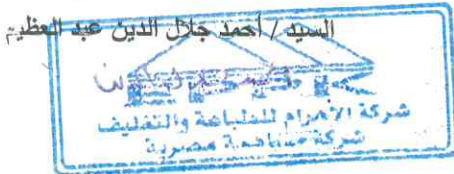 السيد / أحمد جلال الدين عبد العظيم
شركة الأهرام للطباعة والتغليف
شركة مساهمة مصرية